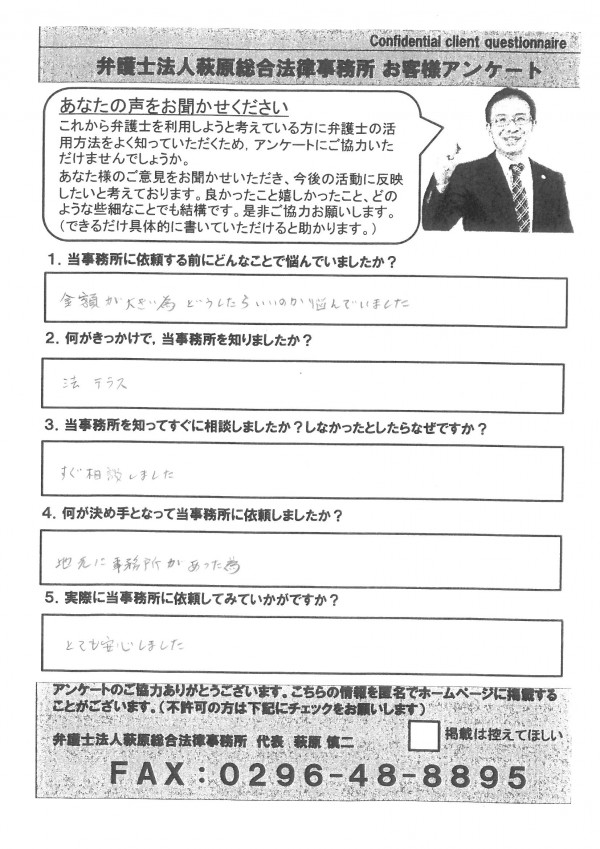 Confidential client questionnaire
弁護士法人萩原総合法律事務所 お客様アンケート
あなたの声をお聞かせください
これから弁護士を利用しようと考えている方に弁護士の活
用方法をよく知っていただくため，アンケートにご協力いた
だけませんでしょうか。
あなた様のご意見をお聞かせいただき、今後の活動に反映
したいと考えております。良かったこと嬉しかったこと、どの
ような些細なことでも結構です。是非ご協力お願いします。
（できるだけ具体的に書いていただけると助かります。）
1．当事務所に依頼する前にどんなことで悩んでいましたか？
金額が大きい為 どうしたらいいのか悩んでいました
2．何がきっかけで，当事務所を知りましたか？
法テラス
3．当事務所を知ってすぐに相談しましたか？しなかったとしたらなぜですか？
すぐ相談しました
4．何が決め手となって当事務所に依頼しましたか？
地元に事務所があった為
5．実際に当事務所に依頼してみていかがですか？
とても安心しました
アンケートのご協力ありがとうございます。こちらの情報を匿名でホームページに掲載する
ことがございます。（不許可の方は下記にチェックをお願いします）
弁護士法人萩原総合法律事務所 代表 萩原 慎二
掲載は控えてほしい
FAX：0296-48-8895